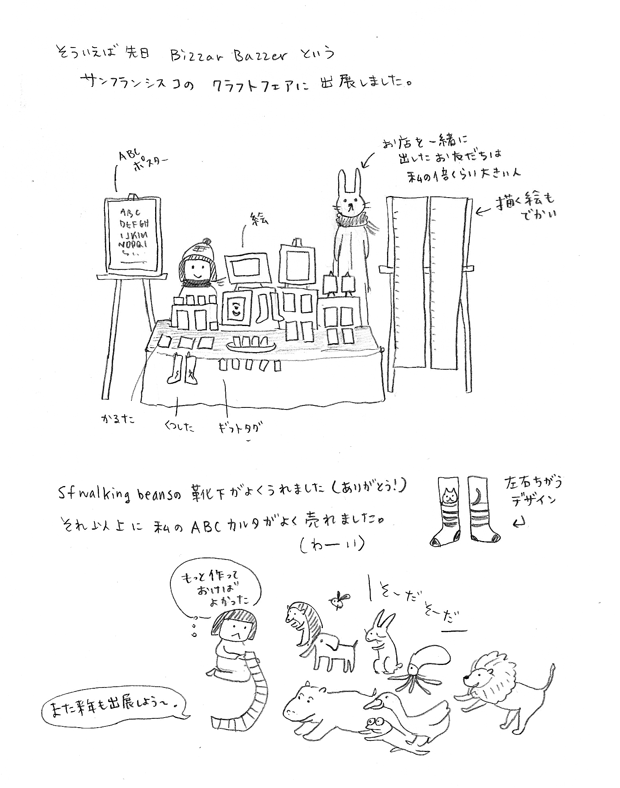 そういえば先日 Bizzar Bazzer という
サンフランシスコの クラフトフェアに 出展しました。
ABC
ポスター
お店を一緒に
出したお友だちは
私の倍くらい大きい人
描く絵も
でかい
絵
ABC
DEFGH
IJKLM
NOPQ
かるた
くつした
ギフトタグ
sfwalking beansの 靴下がよくうれました(ありがとう!)
それ以上に 私の ABCカルタがよく 売れました。
(わーい)
左右ちがう
デザイン
もっと作って
おけば
よかった
そーだ
そーだ
また来年も出展しよう〜。